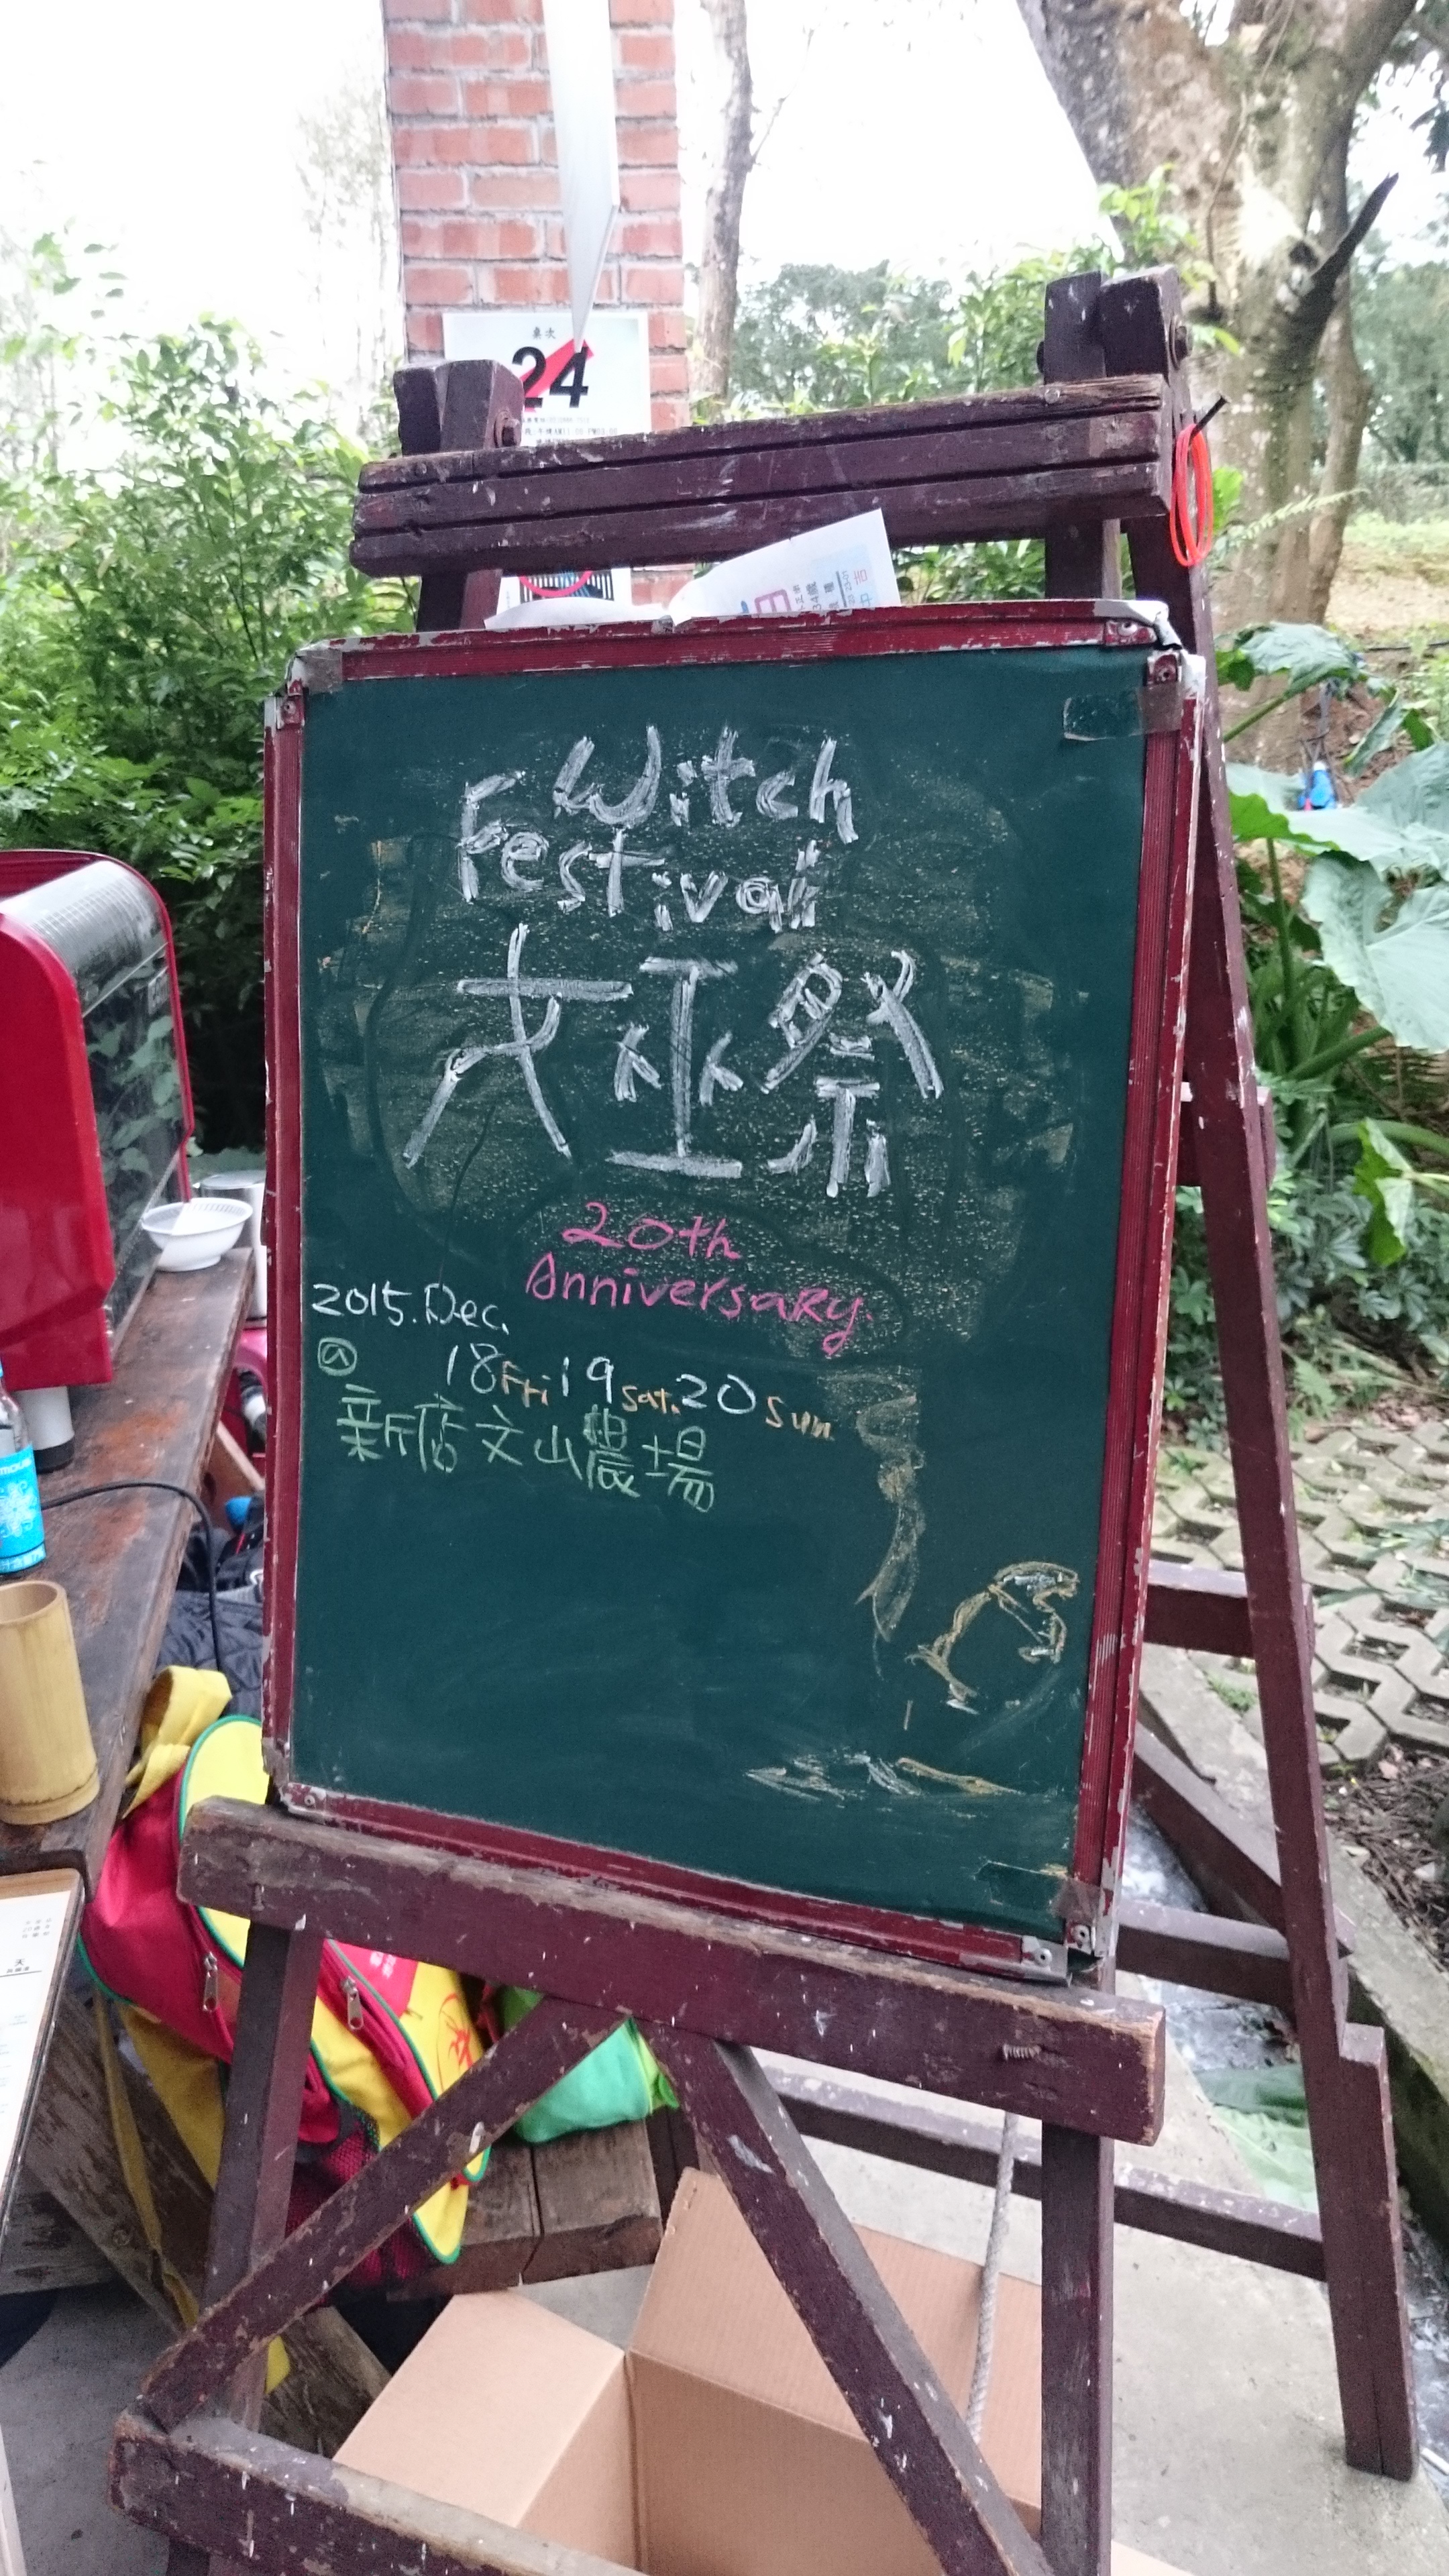 桌次
24
Witch
Festival
大巫祭
20th
Anniversary.
2015.Dec.
18 Fri 19 Sat. 20 Sun
@
新店文山農場